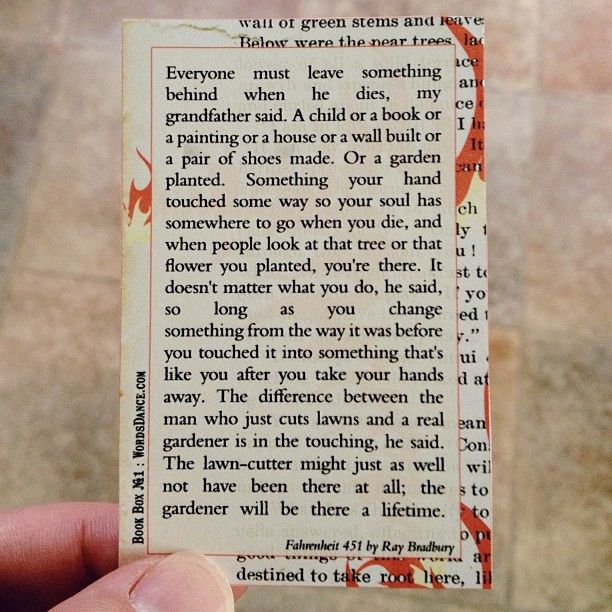 wall of green stems and leave
Below were the pear trees, lac
Everyone must leave something
behind when he dies, my
grandfather said. A child or a book or
a painting or a house or a wall built or
a pair of shoes made. Or a garden
planted. Something your hand
touched some way so your soul has
somewhere to go when you die, and
when people look at that tree or that
flower you planted, you're there. It
doesn't matter what you do, he said,
so long as you change
something from the way it was before
you touched it into something that's
like you after you take your hands
away. The difference between the
man who just cuts lawns and a real
gardener is in the touching, he said.
The lawn-cutter might just as well
not have been there at all; the
gardener will be there a lifetime.
Fahrenheit 451 by Ray Bradbury
Book Box №1 : WordsDance.com
good things of
destined to take root here, li